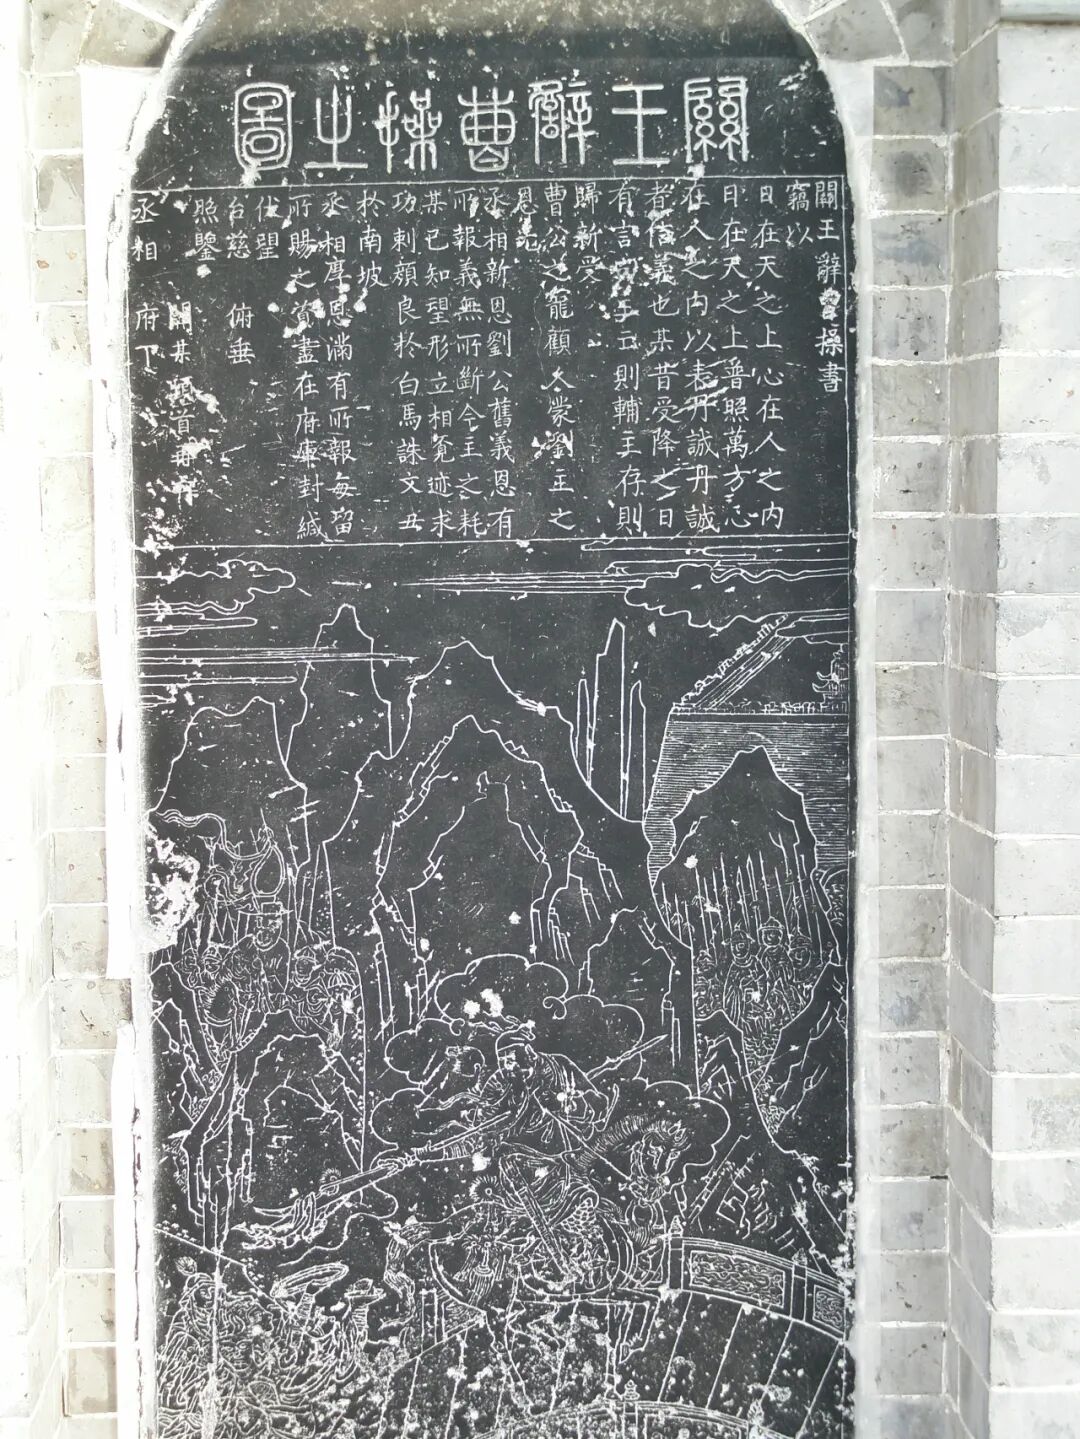 關王辭曹操之圖
關王辭曹操書
竊以
日在天之上心在人之內
日在天之上普照萬方心
在人之內以表丹誠丹誠
者信義也某昔受降之日
有言曰主亡則輔主存則
歸新受
曹公之寵顧久蒙劉主之
恩光
丞相新恩劉公舊義恩有
所報義無所斷今主之耗
某已知望形立相覓迹求
功刺顏良於白馬誅文丑
於南坡
丞相厚恩滿有所報每留
所賜之資盡在府庫封緘
伏望
台慈 俯垂
照鑒
關某頓首再拜
丞相 府下